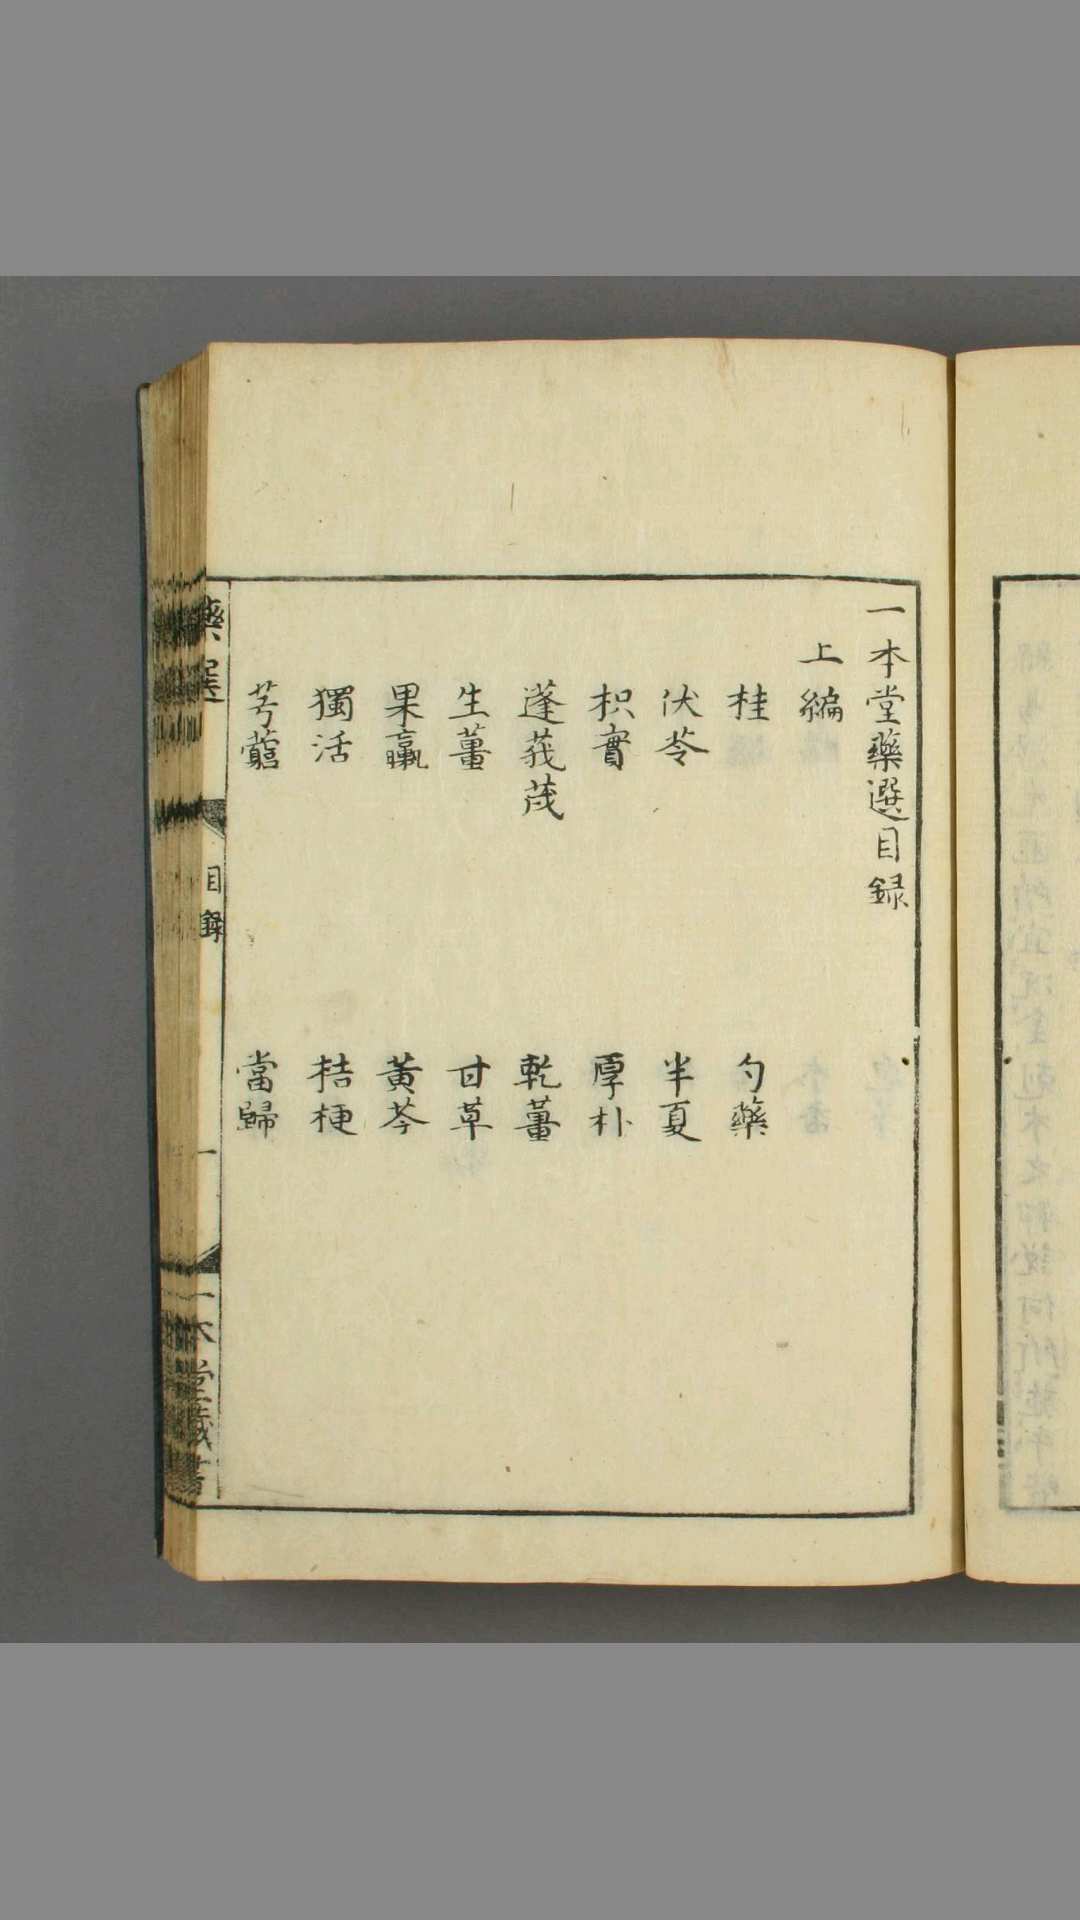 一本堂藥選目録
上編
桂 勺藥
伏苓 半夏
枳實 厚朴
蓬莪茂 乾薑
生薑 甘草
果蠃 黄芩
獨活 桔梗
芎藭 當歸
藥選 目録 一 一本堂藏書